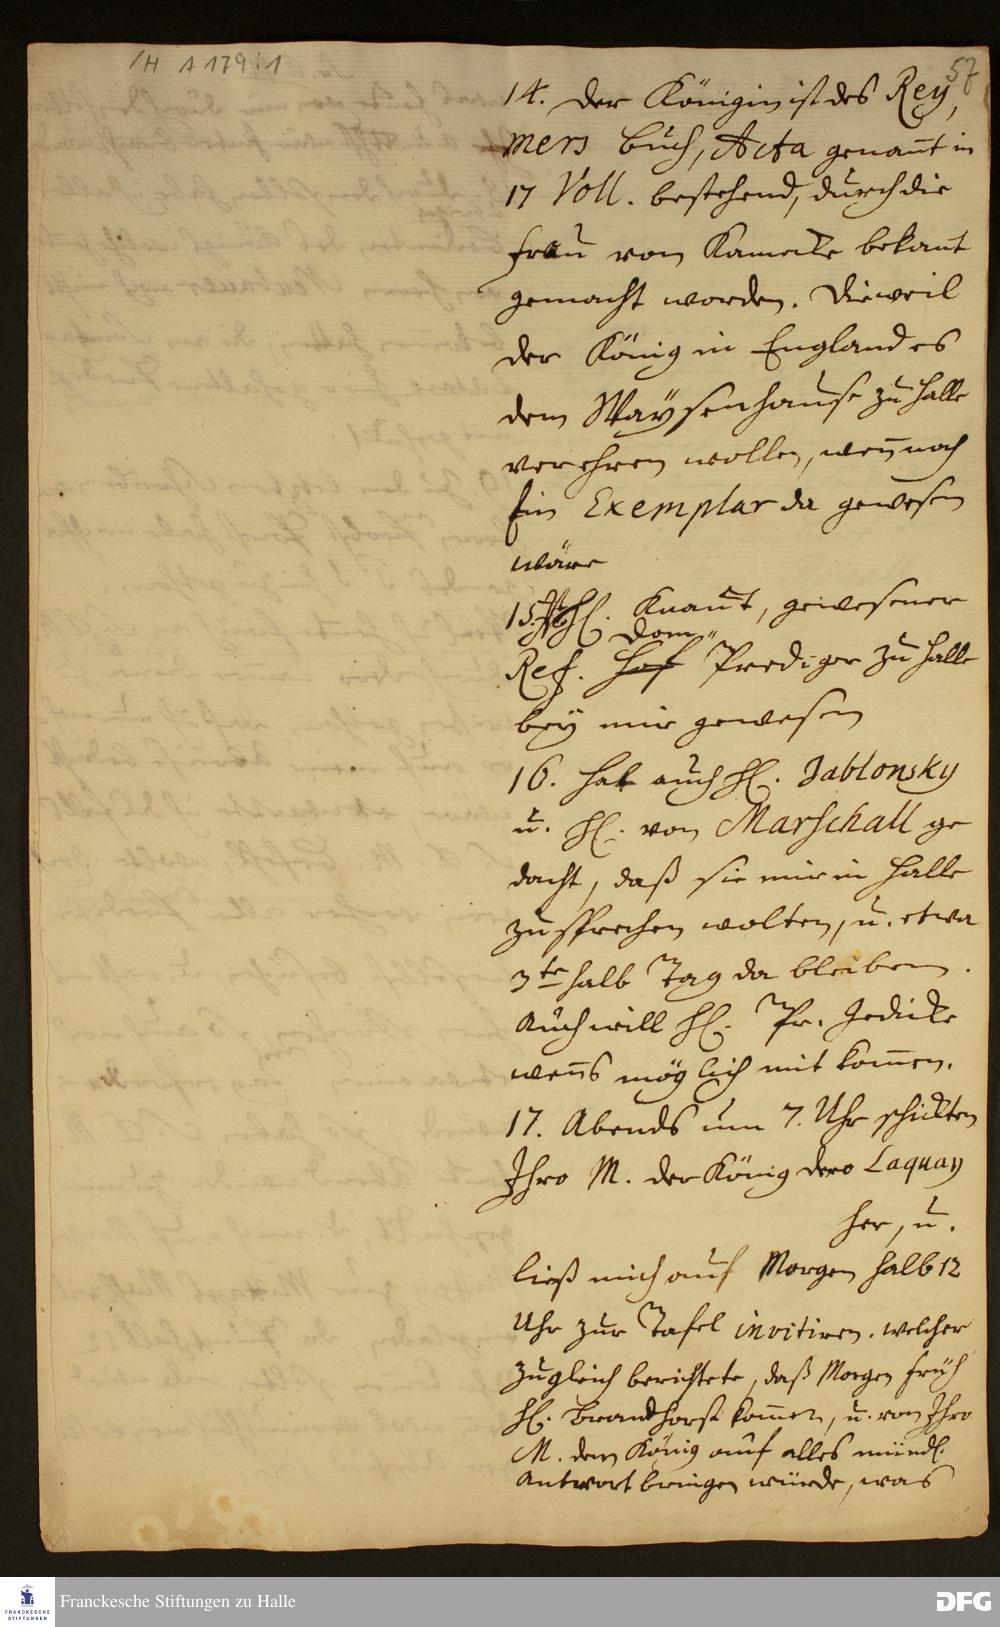 /H A 179:1
57
14. der Königin ist des Rey,
mers Buch, Acta genañt in
17 Voll. bestehend, durch die
Frau von Kamecke bekant
gemacht worden. Dieweil
der König in England es
dem Waÿsenhause zu Halle
verehren wollen, weñ noch
ein Exemplar da gewesen
wäre
15. Hl. Knaut, gewesener
Dom
Ref. Hof Prediger zu Halle
beÿ mir gewesen
16. hat auch Hl. Jablonsky
u. Hl. von Marschall ge
dacht, daß sie mir in Halle
zusprechen wolten, u. etwa
3te halb Tag da bleiben.
Auch will Hl. Pr. Jedicke
weñs möglich mit kom̄en.
17. Abends um 7. Uhr schickten
Ihro M. der König dero Laquay
her, u.
ließ mich auf Morgen halb 12
Uhr zur Tafel invitiren. welcher
zugleich berichtete, daß Morgen früh
Hl. Brandhorst kom̄en, u. von Ihro
M. dem König auf alles mündl.
Antwort bringen würde, was
FRANCKESCHE STIFTUNGEN
Franckesche Stiftungen zu Halle
DFG